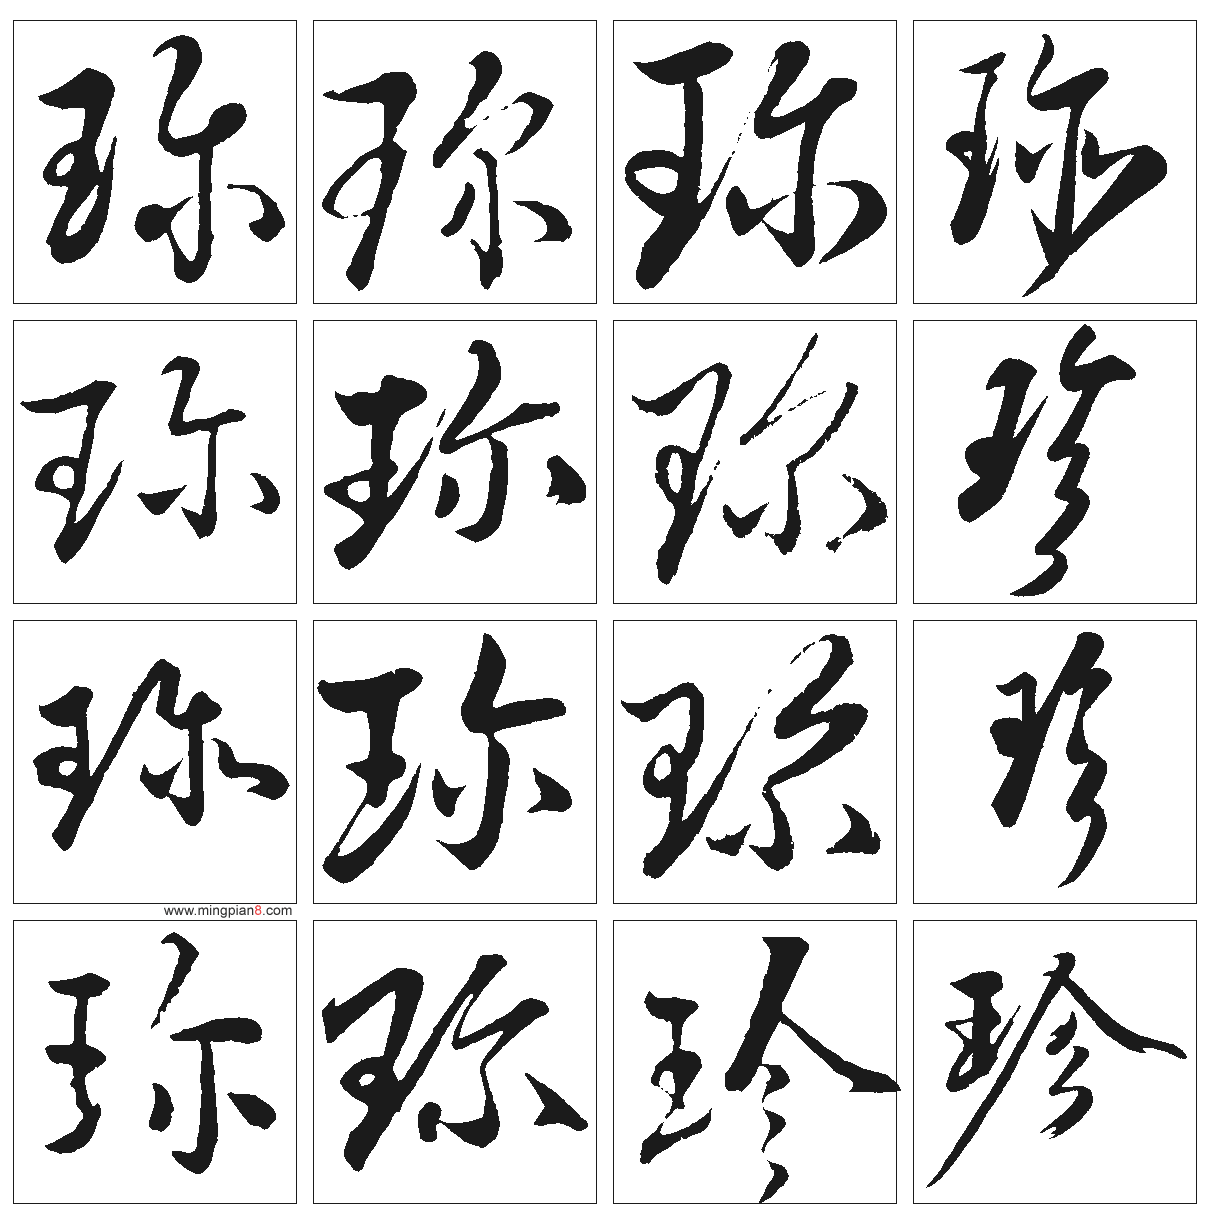 珎 珎 珎 珎
珎 珎 珎 珍
珎 珎 珎 珍
www.mingpian8.com
珎 珎 珍 珍